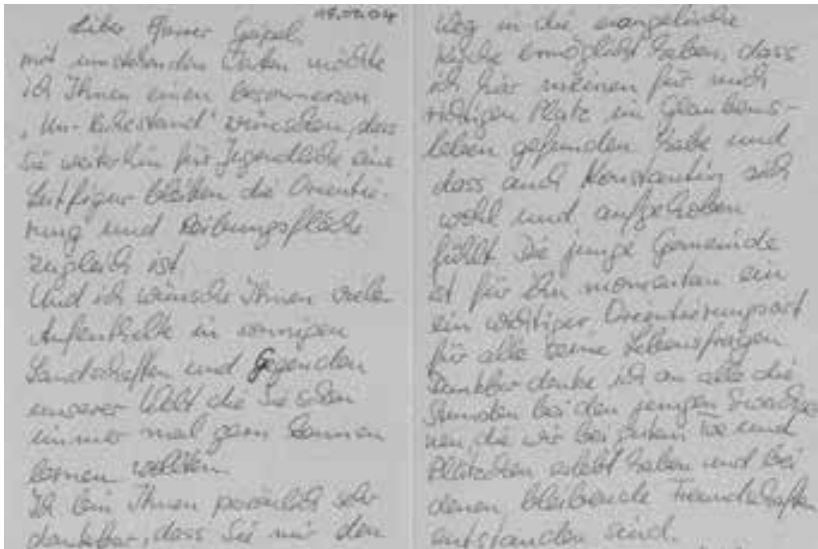 Lieber Pfarrer
mit umstehenden Daten möchte
ich Ihnen einen besonnenen
„Un-Ruhestand" wünschen, dass
Sie weiterhin für Jugendliche eine
Leitfigur bleiben die Orientie-
rung und Reibungsfläche
zugleich ist.
Und ich wünsche Ihnen viele
Aufenthalte in sonnigen
Landschaften und Gegenden
unserer Welt die Sie schon
immer mal gern kennen
lernen wollten.
Ich bin Ihnen persönlich sehr
dankbar, dass Sie mir den
Weg in die evangelische
Kirche ermöglicht haben, dass
ich hier meinen für mich
richtigen Platz im Glaubens-
leben gefunden habe und
dass auch Konstantin sich
wohl und aufgehoben
fühlt. Die junge Gemeinde
ist für ihn momentan ein
ein wichtiger Orientierungsort
für alle seine Lebensfragen.
Dankbar denke ich an alle die
Stunden bei den jungen Erwachse-
nen, die wir bei gutem Tee und
Plätzchen erlebt haben und bei
denen bleibende Freundschaften
entstanden sind.